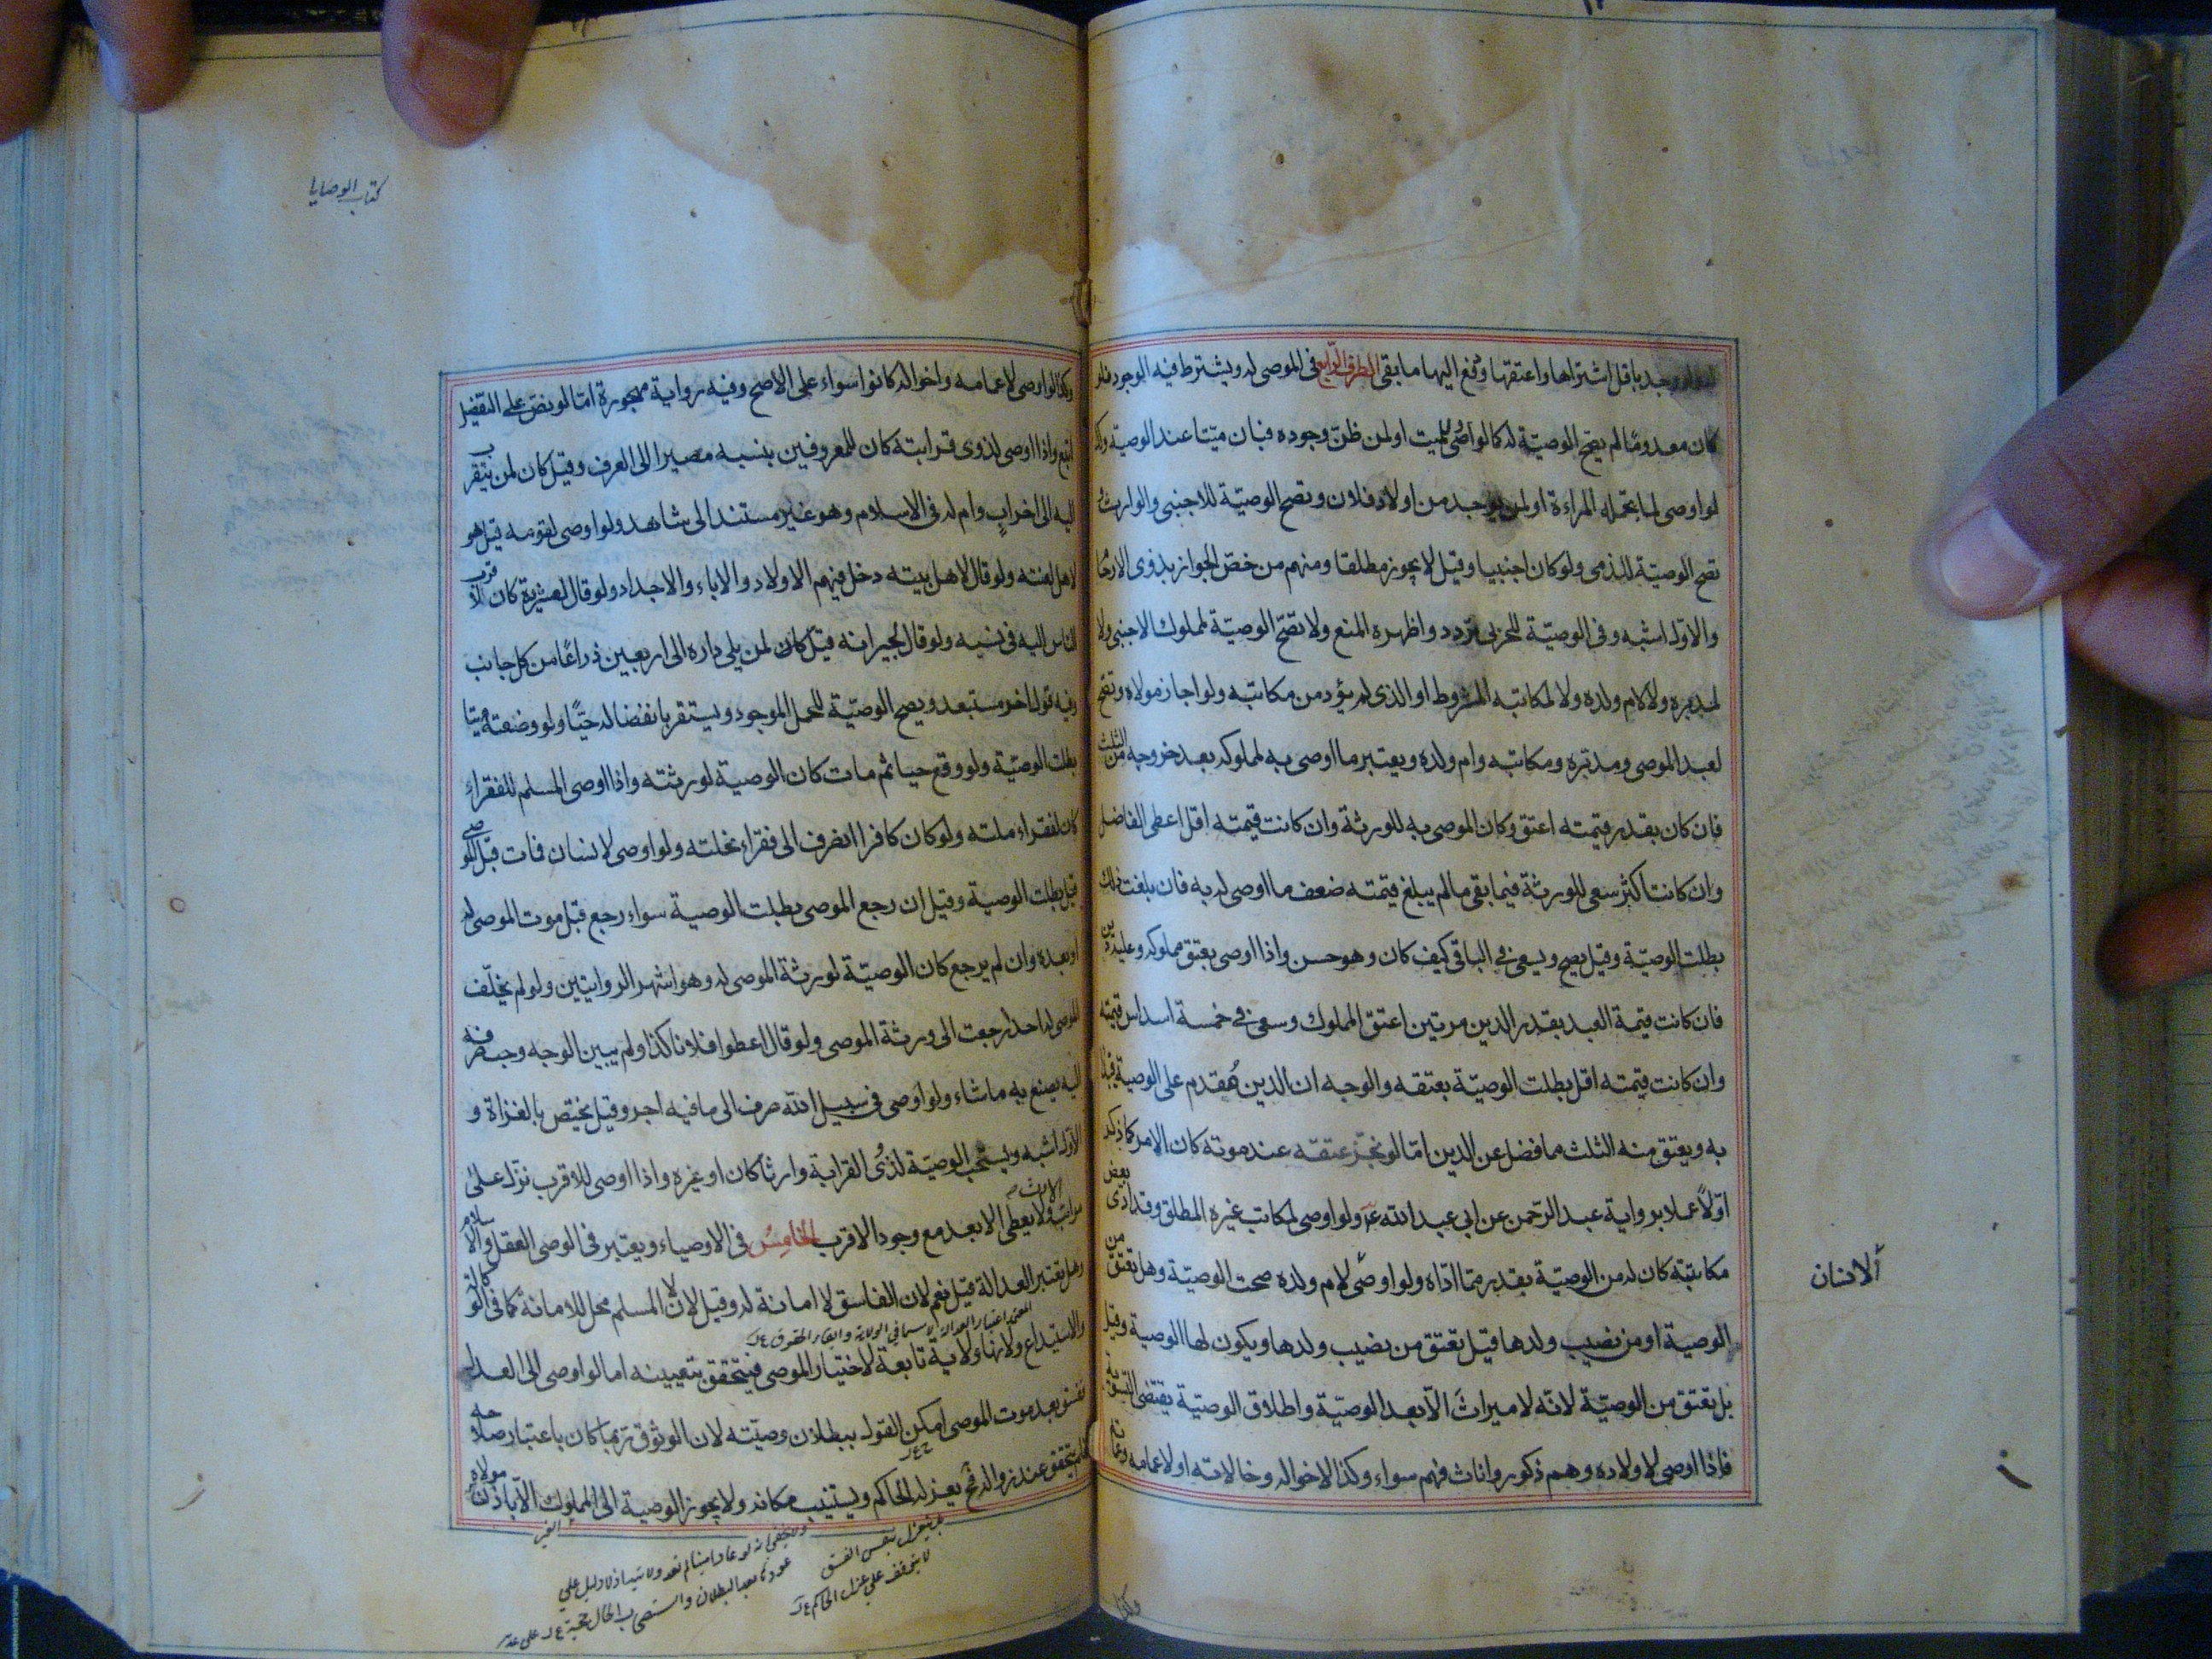 وجد باقل اشتراها واعتقها ودفع اليها ما بقى الطرف الرابع فى الموصى له ويشترط فيه الوجود فلو
كان معدومًا لم يصح الوصيّة له كما لو اوصى للميت او لمن ظنّ وجوده فبان ميّتا عند الوصيّة وكذا
لو اوصى لما تحمله المراءة او لمن يوجد من اولاد فلان وتصح الوصيّة للاجنبى والوارث و
تصح الوصيّة للذمى ولو كان اجنبيا وقيل لا يجوز مطلقا ومنهم من خصّ الجواز بذوى الارحام
والاوّل اشبه وفى الوصيّة للحربى تردد واظهره المنع ولا تصحّ الوصيّة لمملوك الاجنبى ولا
لمدبره ولا لام ولده ولا لمكاتبه المشروط او الذى لم يؤد من مكاتبته ولو اجاز مولاه وتصح
لعبد الموصى ومدبّره ومكاتبه وام ولده ويعتبر ما اوصى به لمملوكه بعد خروجه من الثلث
فان كان بقدر قيمته اعتق وكان الموصى به للورثة وان كانت قيمته اقل اعطى الفاضل
وان كانت اكثر سعى للورثة فيما بقى ما لم يبلغ قيمته ضعف ما اوصى له به فان بلغت ذلك
بطلت الوصيّة وقيل يصح ويسعى فى الباقى كيف كان وهو حسن واذا اوصى بعتق مملوكه وعليه دين
فان كانت قيمة العبد بقدر الدين مرتين اعتق المملوك وسعى فى خمسة اسداس قيمته
وان كانت قيمته اقل بطلت الوصيّة بعتقه والوجه ان الدين مُقدم على الوصية فيبدا
به ويعتق منه الثلث مما فضل عن الدين امّا لو نجّز عتقه عند موته كان الامر كما ذكر
اوّلاً عملا برواية عبد الرّحمن عن ابى عبد الله ع ولو اوصى لمكاتب غيره المطلق وقد ادّى بعض
مكاتبته كان له من الوصيّة بقدر ما ادّاه ولو اوصى لام ولده صحت الوصيّة وهل تعتق من
الوصية او من نصيب ولدها قيل تعتق من نصيب ولدها ويكون لها الوصية وقيل
بل تعتق من الوصيّة لانّه لا ميراثَ الّا بعد الوصيّة واطلاق الوصيّة يقتضى التسوية
فاذا اوصى لاولاده وهم ذكور واناث فهم سواء وكذا لاخواله وخالاته او لاعمامه وعماته
الانسان
وكذا
كتاب الوصايا
وكذا لو اوصى لاعمامه واخواله كانوا سواء على الاصح وفيه رواية مهجورة امّا لو نصّ على التفضيل
اتبع واذا اوصى لذوى قرابته كان للمعروفين بنسبه مصيرا الى العرف وقيل كان لمن يتقرب
اليه الى اخر ابٍ وام له فى الاسلام وهو غير مستند الى شاهد ولو اوصى لقومه قيل هو
لاهل لغته ولو قال لاهل بيته دخل فيهم الاولاد والاباء والاجداد ولو قال لعشيرته كان لاقرب
الناس اليه فى نسبه ولو قال لجيرانه قيل كان لمن يلى داره الى اربعين ذراعًا من كل جانب
وفيه قول اخر مستبعد ويصح الوصيّة للحمل الموجود ويستقر بانفصاله حيًّا ولو وضعته ميتا
بطلت الوصيّة ولو وقع حيا ثم مات كان الوصية لورثته واذا اوصى المسلم للفقراء
كان لفقراء ملته ولو كان كافرا انصرف الى فقراء نحلته ولو اوصى لانسان فمات قبل الموصى
قيل بطلت الوصية وقيل ان رجع الموصى بطلت الوصية سواء رجع قبل موت الموصى له
او بعده وان لم يرجع كان الوصيّة لورثة الموصى له وهو اشهر الروايتين ولو لم يخلّف
الموصى له احدا رجعت الى ورثة الموصى ولو قال اعطوا فلانا كذا ولم يبين الوجه وجب صرفه
اليه يصنع به ما شاء ولو اوصى فى سبيل الله صرف الى ما فيه اجر وقيل يختص بالغزاة و
الاوّل اشبه ويستحب الوصيّة لذوى القرابة وارثا كان او غيره واذا اوصى للاقرب نزّل على
مراتب الارث ولا يعطى الابعد مع وجود الاقرب الخامس فى الاوصياء ويعتبر فى الوصى العقل والاسلام
وهل تعتبر العدالة قيل نعم لان الفاسق لا امانة له وقيل لا لان المسلم محل للامانة كما فى الوكالة
المعتمد اعتبار العدالة لا سيما فى الولاية وايفاء الحقوق ع ل
والاستيداع ولانها ولاية تابعة لاختيار الموصى فيتحقق بتعيينه اما لو اوصى الى العدل
ففسق بعد موت الموصى امكن القول ببطلان وصيّته لان الوثوق ربما كان باعتبار صلاحه
فلم يتحقق عند زواله فح يعزله الحاكم ويستنيب مكانه ولا يجوز الوصية الى المملوك الّا باذن مولاه
ينعزل بنفس الفسق
لا يتوقف على عزل الحاكم ع ل